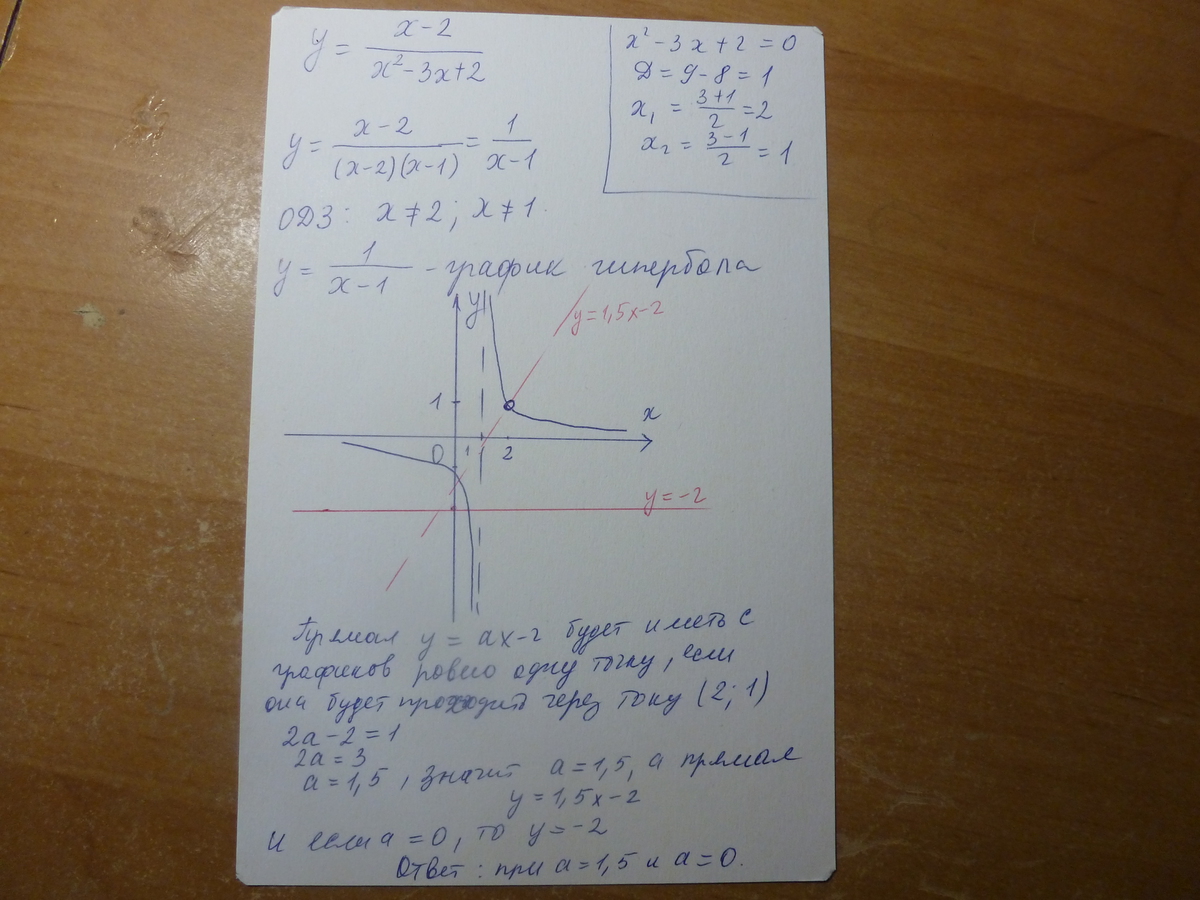 y = x-2 / x²-3x+2
y = x-2 / (x-2)(x-1) = 1 / x-1
ОДЗ: x ≠ 2; x ≠ 1.
x² - 3x + 2 = 0
Д = 9 - 8 = 1
x₁ = 3+1 / 2 = 2
x₂ = 3-1 / 2 = 1
y = 1 / x-1 - график гипербола
y
y = 1,5x-2
1
x
0 1 2
y = -2
Прямая y = ax-2 будет иметь с
графиков ровно одну точку, если
она будет проходить через току (2; 1)
2a - 2 = 1
2a = 3
a = 1,5, значит a = 1,5, а прямая
y = 1,5x-2
И если a = 0, то y = -2
Ответ: при a = 1,5 и a = 0.